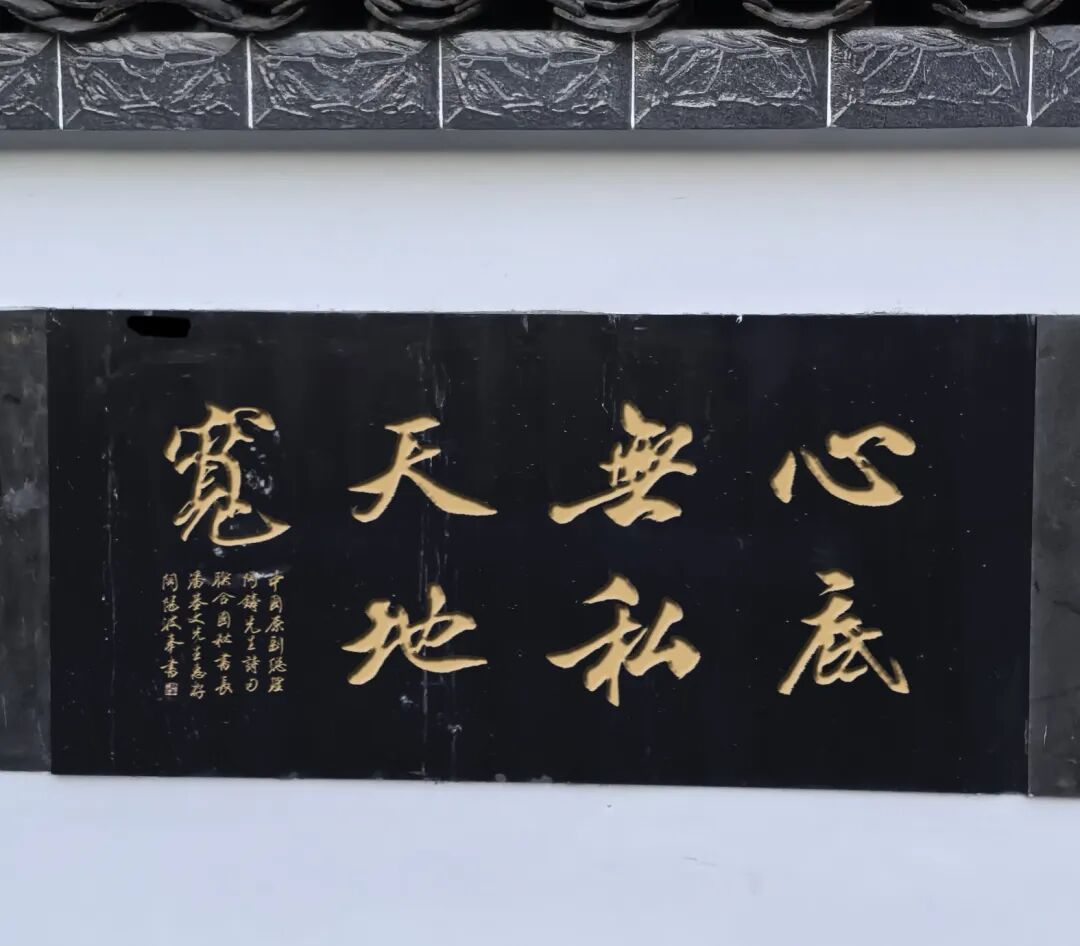 心底
無私
天地
寬
中國原副總理
陶鑄先生詩句
聯合國秘書長
潘基文先生惠存
奉書